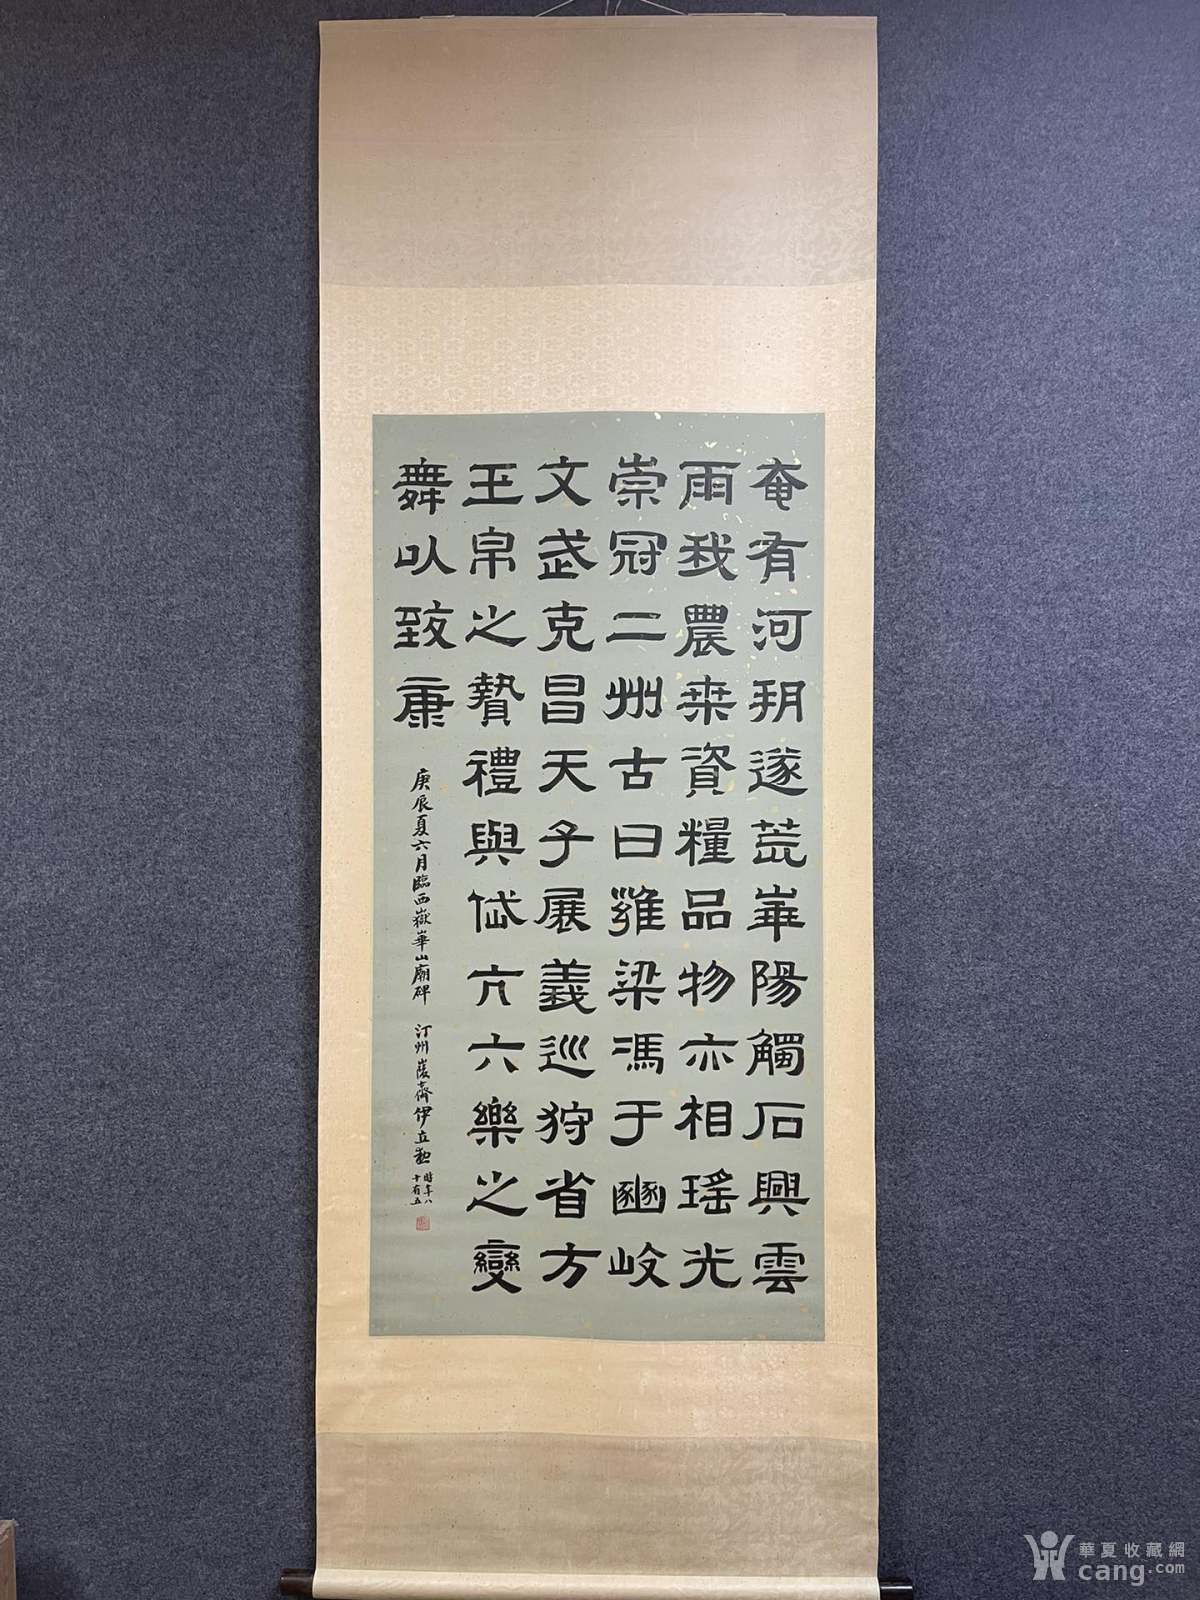 奄有河朔遂荒崋陽觸石興雲
雨我農桒資糧品物亦相瑤光
崇冠二州古曰雍梁馮于豳岐
文武克昌天子展義巡狩省方
玉帛之贄禮與岱亢六樂之變
舞以致康
庚辰夏六月臨西嶽崋山廟碑 汀州峻齋伊立勳 時年八十有五
華夏收藏網
cang.com